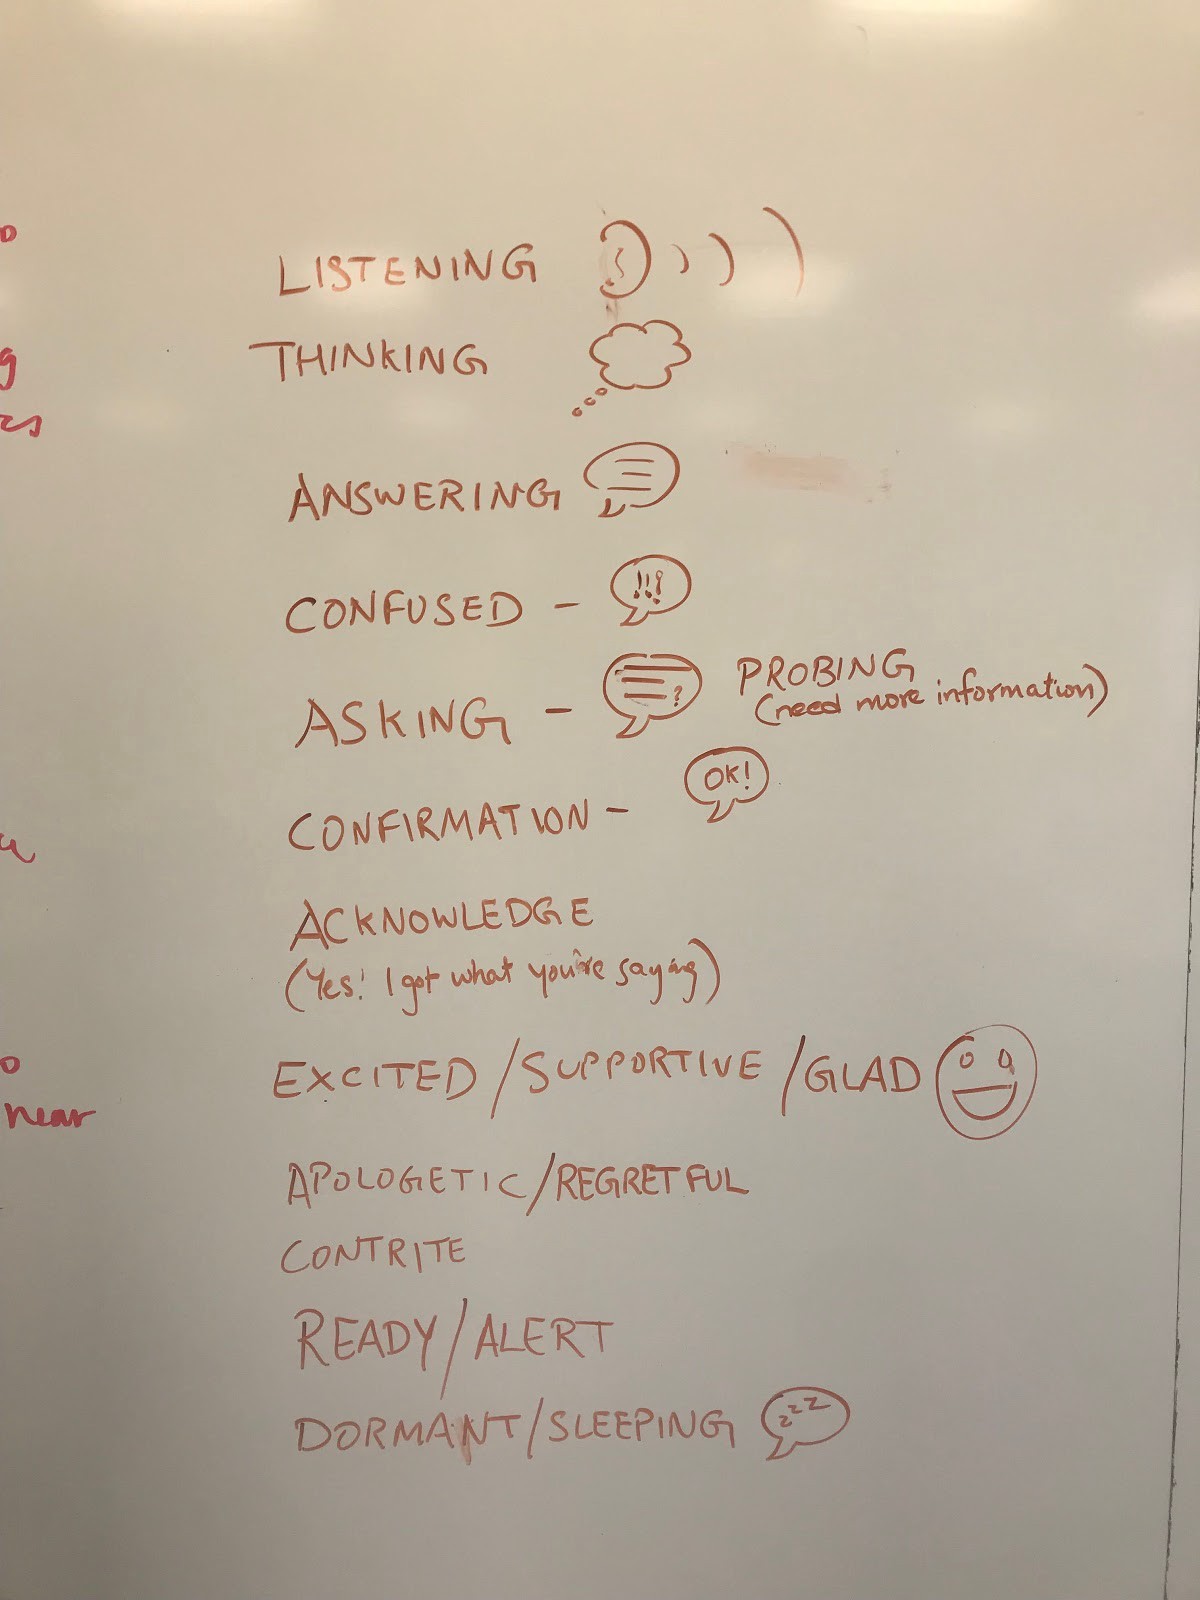 LISTENING
THINKING
ANSWERING
CONFUSED - !!!
ASKING - ? PROBING
(need more information)
CONFIRMATION - OK!
ACKNOWLEDGE
(Yes! I got what you're saying)
EXCITED / SUPPORTIVE / GLAD
APOLOGETIC / REGRETFUL
CONTRITE
READY / ALERT
DORMANT / SLEEPING zzz
near